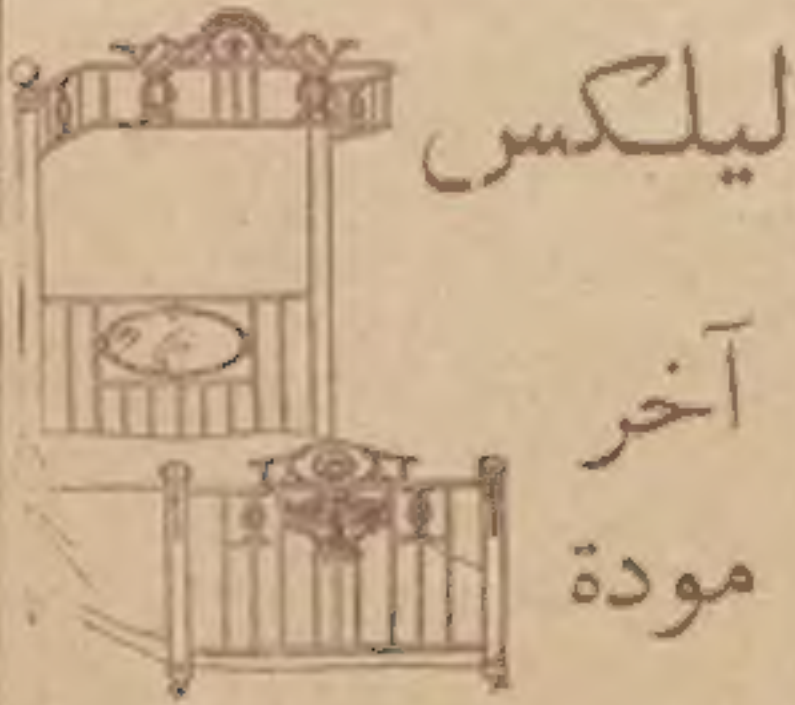 ليلكس
آخر
مودة